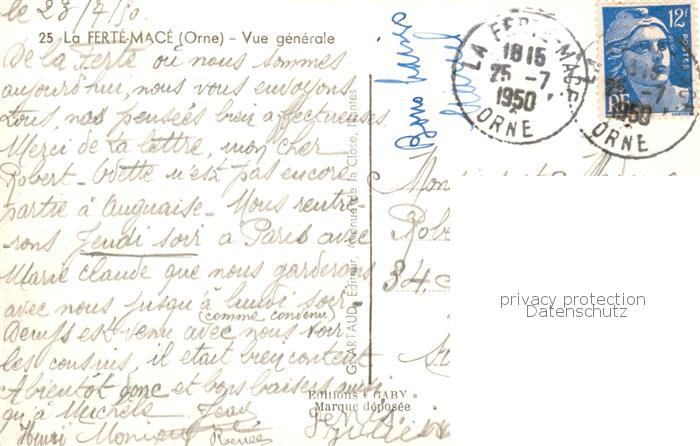 le 23/7/50
25 La FERTÉ-MACÉ (Orne) - Vue générale
De la Ferté où nous sommes
aujourd'hui, nous vous envoyons
tous nos pensées bien affectueuses
Merci de la lettre, mon cher
Robert - Odette n'est pas encore
partie à - Nous rentre-
rons Jeudi soir a Paris avec
Marie claude que nous garderons
avec nous jusqu'à lundi soir
(comme convenu)
est venu avec nous voir
les cousins, il était bien content
A bientôt donc et bons baisers ainsi
qu'à Michèle Jean
Henri
G. ARTAUD, Editeur, Avenue de la Close, Nantes
Editions "GABY"
Marque déposée
Bons
LA FERTE-MACE
1815
25-7
1950
ORNE
12F
POSTES
RF
1815
25-7
1950
ORNE
34
privacy protection
Datenschutz